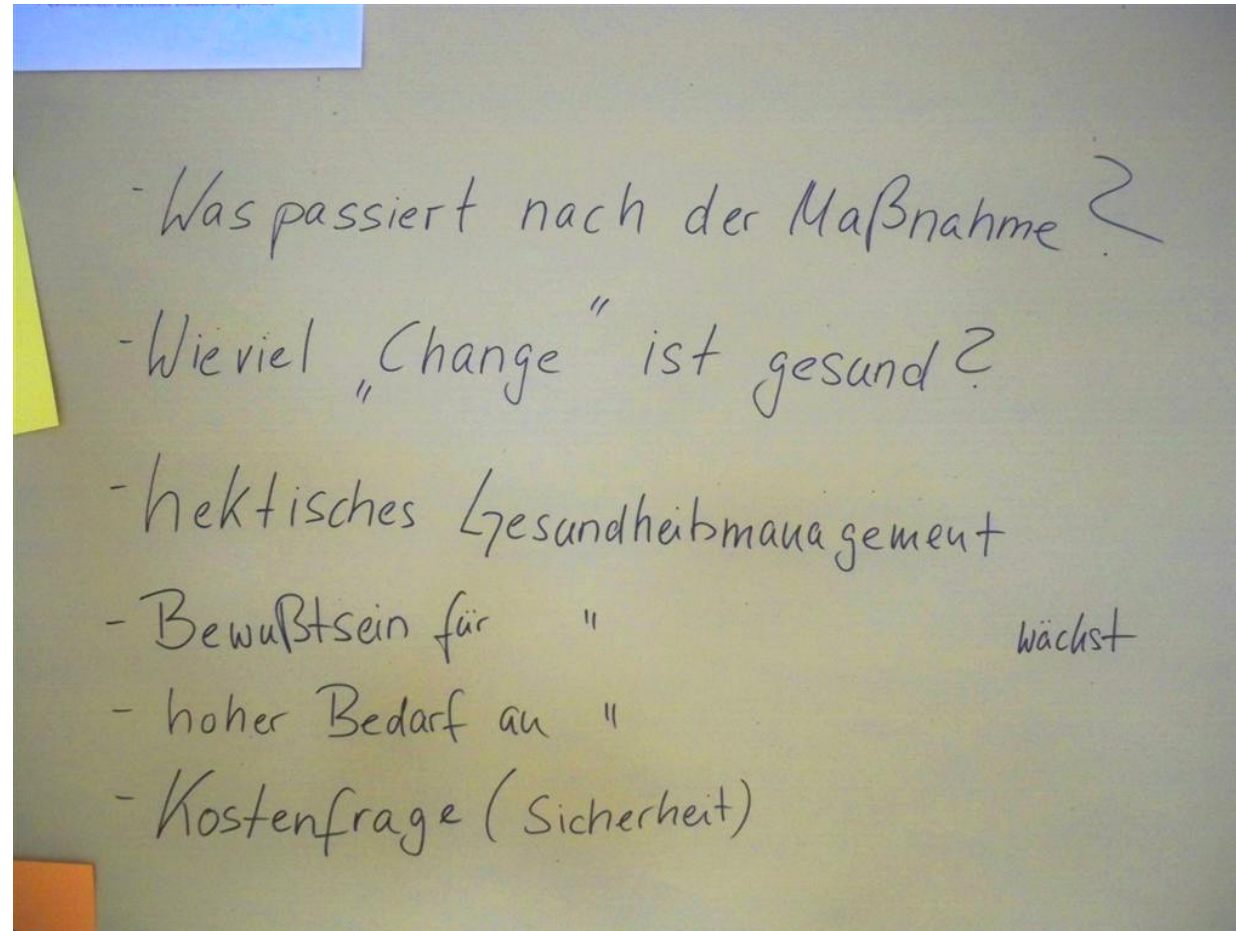 - Was passiert nach der Maßnahme?
- Wieviel „Change" ist gesund?
- hektisches Gesundheitsmanagement
- Bewußtsein für " wächst
- hoher Bedarf an "
- Kostenfrage (Sicherheit)